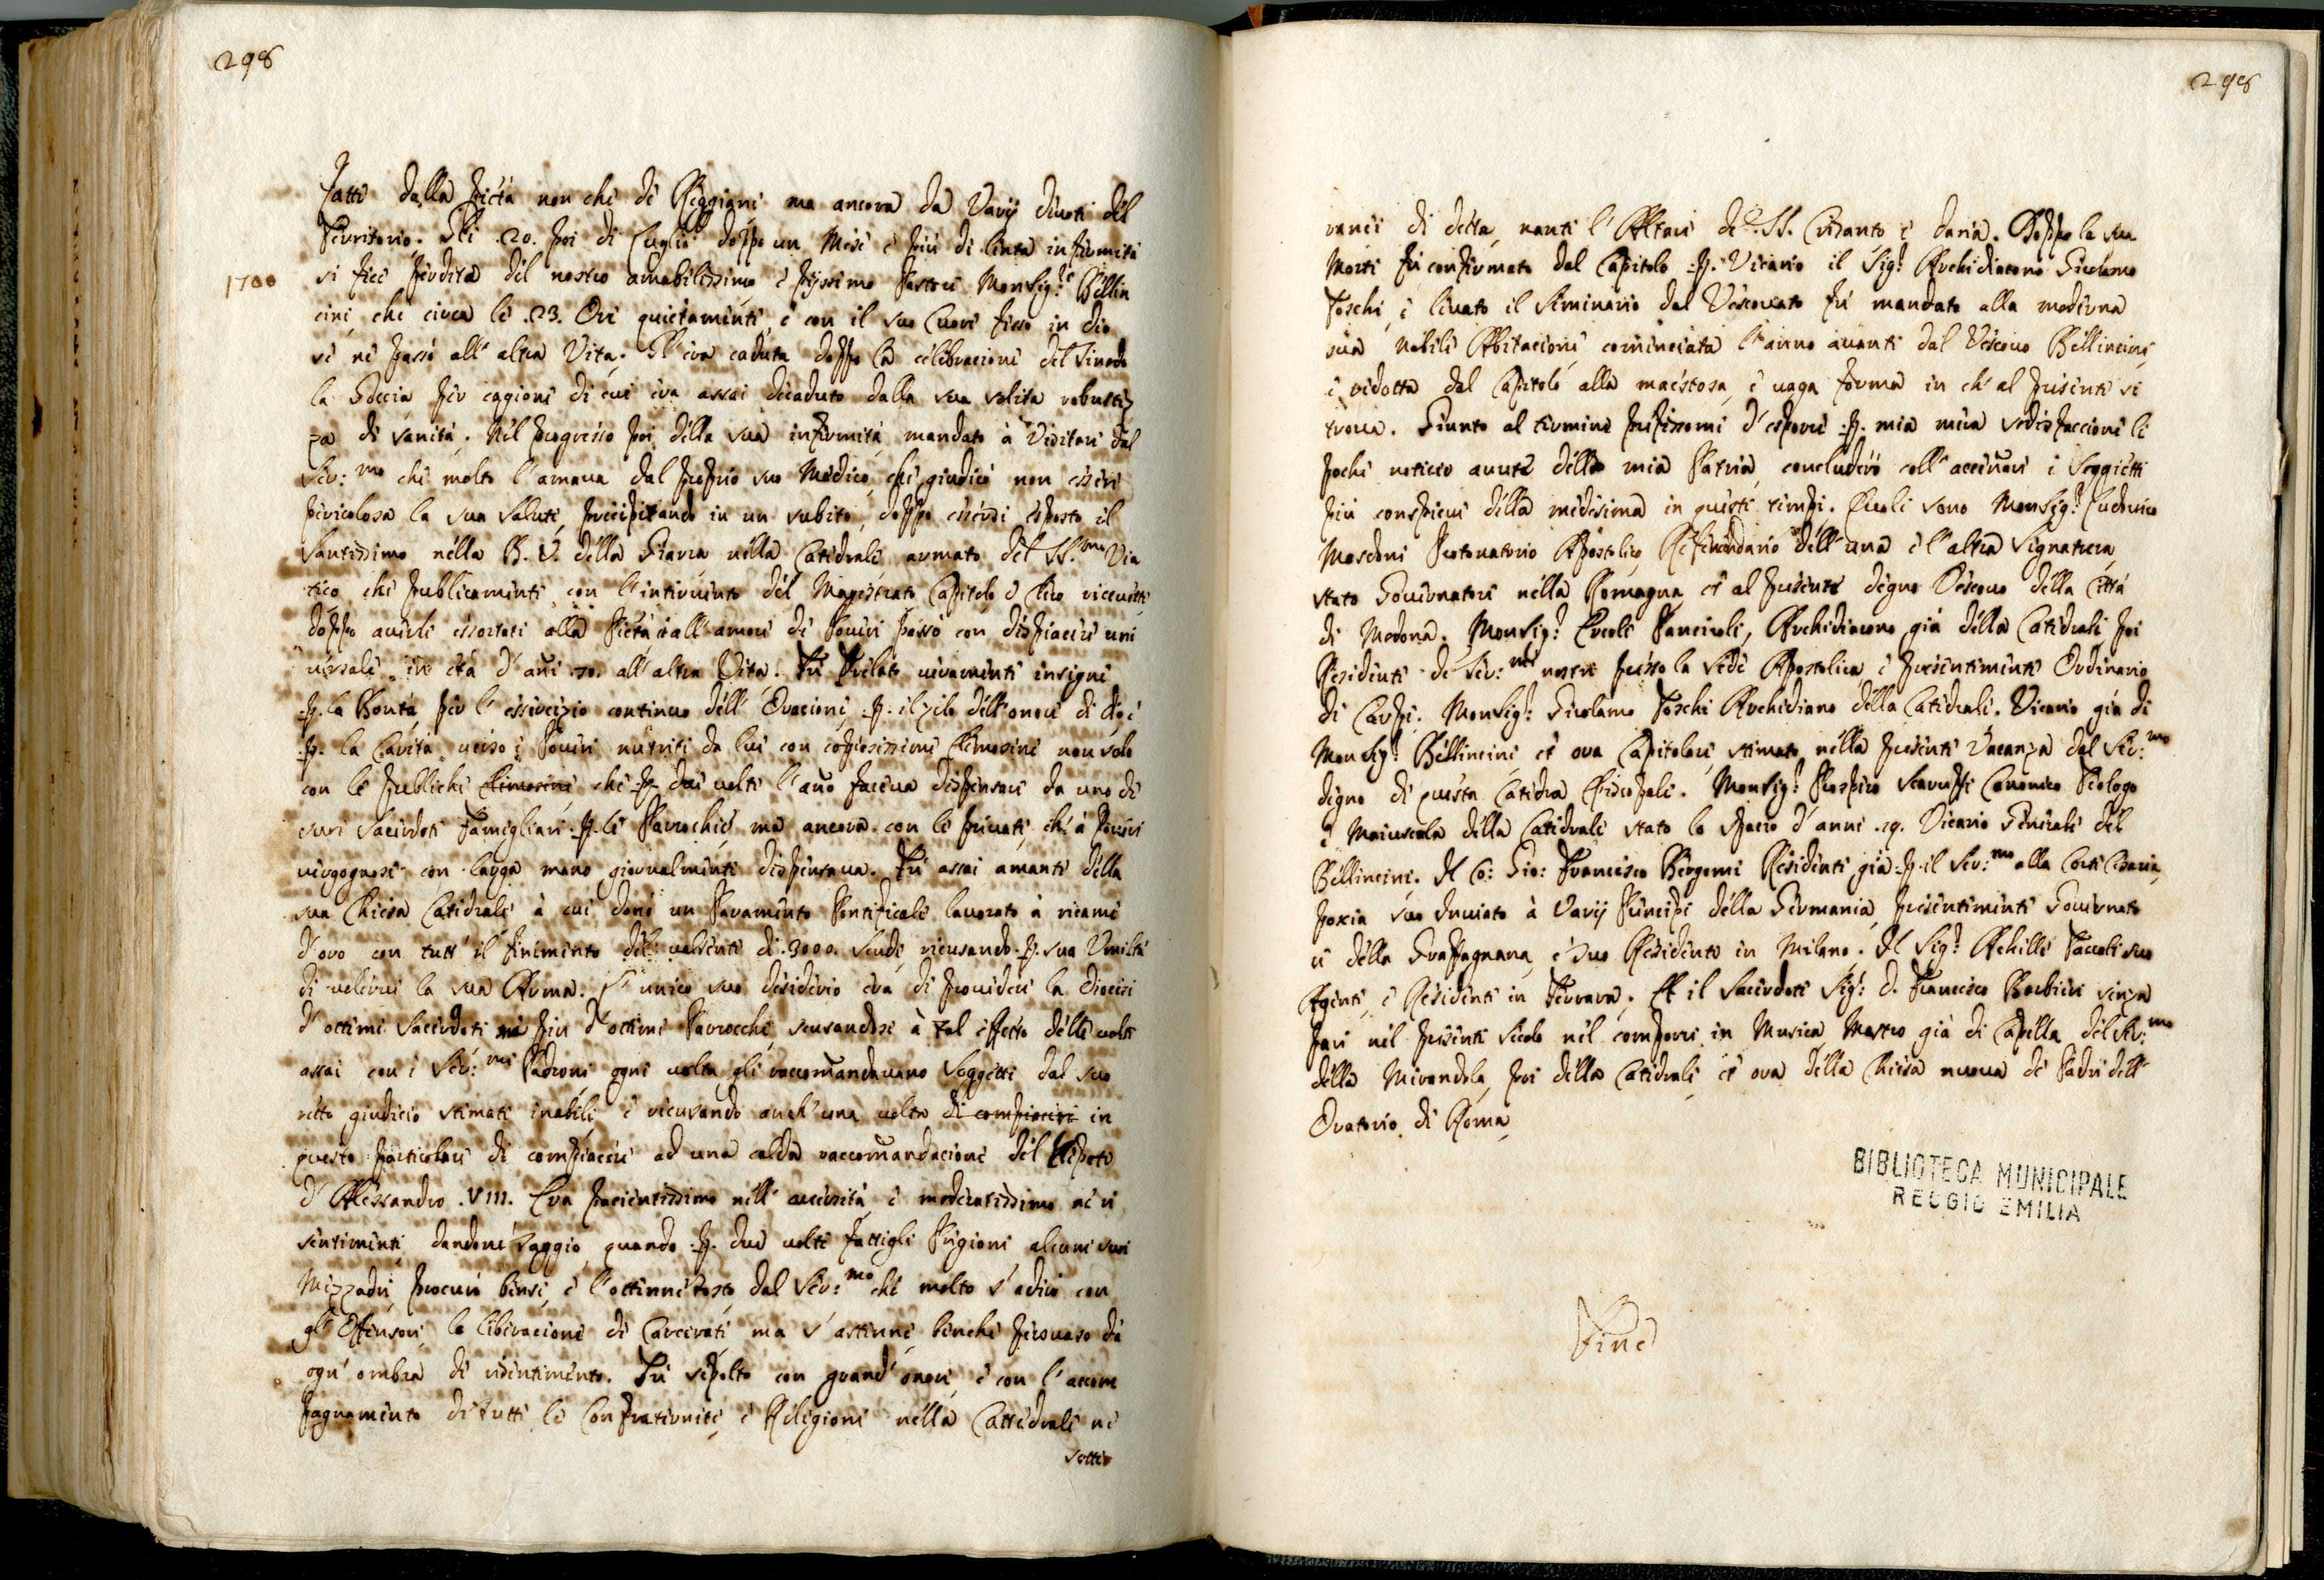 298
fatti dalla pietà non che di Reggiani ma ancora da Varij diuoti del
Territorio. Alli .20. poi di Luglio doppo un Mese e più di lenta infirmità
1700
si fece perdita del nostro amabilissimo e pijssimo Pastore Monsig.re Bellin
cini, che circa le .23. Ore quietamente, e con il suo Cuore fisso in dio
se ne passò all'altra Vita. Gl'era caduta doppo la celebracione del Sinodo
la Goccia per cagione di cui era assai decaduto dalla sua solita robustez
za di sanità. Nel progresso poi della sua infirmità mandato à Visitare dal
Ser:mo che molto l'amaua dal proprio suo Medico, che giudicò non essere
pericolosa la sua salute, precipitando in un subito, doppo essersi esposto il
Santissimo nella B. V. della Giarra nella Catedrale armato del SS.mo Via
tico che publicamente con l'interuento del Magistrato Capitolo e Clero riceuette
doppo auerli essortati alla Pietà e all'amore di Poueri passò con dispiacere uni
uersale in età d'ani .70. all'altra Vita. Fù Prelato ueramente insigne
p. la Bontà, per l'essercizio continuo dell'Oracione, p. il zelo dell'onore di dio, e
p. la Carità uerso i Poueri nutriti da lui con copiosissime Elemosine non solo
con le publiche Elemosine che p. due uolte l'ano faceua dispensare da uno di
suoi Sacerdoti Famigliari p. le Parochie, ma ancora con le priuate, ch'à Poueri
uergognosi con larga mano giornalmente dispensaua. Fù assai amante della
sua Chiesa Catedrale à cui donò un Paramento Pontificale lauorato à ricamo
d'oro con tutt'il finimento del ualsente di .3000. Scudi, ricusando p. sua Umiltà
di uolerui la sua Arma. L'unico suo desiderio era di prouidere la Diocesi
d'ottimi Sacerdoti ne più d'ottimi Parrocchi, scusandosi à tal effetto delle uolte
assai con i Ser:mi Padroni ogni uolta gli raccomandauano Soggetti dal suo
retto giudicio stimati inabili e ricusando anch'una uolta di compiacere in
questo particolare di compiacere ad una calda raccomandacione del Nipote
d'Alessandro .VIII. Era pacientissimo nell'auersità, e moderatissimo ne i
sentimenti, dandone saggio, quando p. due uolte fattigli Prigioni alcuni suoi
Mezzadri, procurò bensì, e l'ottenne tosto dal Ser:mo che molto s'adirò con
gl'Offensori, la liberacione di Carcerati, ma s'astenne benche persuaso da
ogn'ombra di risentimento. Fù sepolto con grand'onore, e con l'accom
pagnamento di tutte le Confraternite, e Religioni nella Cattedrale ne
sotter
298
ranei di detta, nanti l'Altare de SS. Crisanto e daria. Doppo la sua
Morte fu confirmato dal Capitolo p. Vicario il Sig:r Archidiacono Girolamo
Toschi, e leuato il Seminario dal Vescouato fù mandato alla moderna
sua nobile Abitacione cominciata l'anno auanti dal Vescouo Bellincini,
e ridotta dal Capitolo alla maestosa, e uaga forma in ch'al presente si
troua. Giunto al termine prefissomi d'esporre p. mia mera sodisfaccione le
poche noticie aunte della mia Patria, concluderò coll'accennare i Soggetti
più conspicui della medesima in questi tempi. Quali sono Monsig:r Ludouico
Masdoni Protonotario Apostolico, Referendario dell'una e l'altra Signatura,
stato Gouernatore nella Romagna, et al presente degno Vescouo della Città
di Modona. Monsig:r Ercole Panciroli, Archidiacono già della Catedrale poi
Residente de Ser:mi nostri presso la Sede Apostolica e presentemente Ordinario
di Carpi. Monsig:r Girolamo Toschi Archidiano della Catedrale. Vicario già di
Monsig:r Bellincini, et ora Capitolare, stimato nella presente Vacanza dal Ser:mo
degno di questa Catedra Episcopale. Monsig:r Prospero Scaruffi Canonico Teologo
e Maiuscola della Catedrale stato lo spacio d'anni .19. Vicario Generale del
Bellincini. Il Co: Gio: Francesco Bergomi Residente già p. il Ser:mo alla Corte Cesarea,
poscia suo Inuiato à Varij Principi della Germania, presentemente Gouernato
re della Graffagnana, e suo Residente in Milano. Il Sig:r Achille Taccoli suo
Agente, e Residente in Ferrara. Et il Sacerdote Sig:r D. Francesco Barbieri senza
pari nel presente Secolo nel comporre in Musica, Mastro già di Capella del Ser:mo
della Mirandola, poi della Catedrale, et ora della Chiesa nuoua de Padri dell'
Oratorio di Roma,
BIBLIOTECA MUNICIPALE
REGGIO EMILIA
Fine